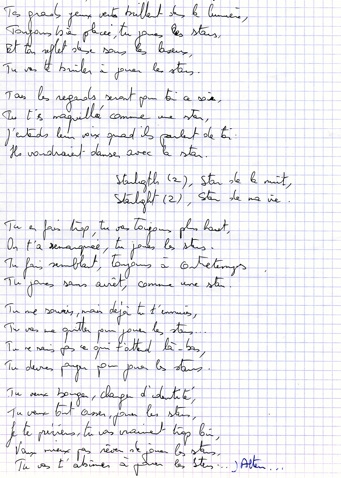 Tes grands yeux verts brillent dans la lumière,
Toujours bien placée, tu joues les stars,
Et ton reflet danse sous les lasers,
Tu vas te brûler à jouer les stars.
Tous les regards seront pour toi ce soir,
Tu t'es maquillée comme une star,
J'entends leur voix quand ils parlent de toi
Ils voudraient danser avec la star.
Starligth (2), Star de la nuit,
Starlight (2), Star de ma vie.
Tu en fais trop, tu vas toujours plus haut,
On t'a remarquée, tu joues les stars.
Tu fais semblant, toujours à contretemps
Tu joues sans arrêt, comme une star.
Tu me souris, mais déjà tu t'ennuies,
Tu vas me quitter pour jouer les stars...
Tu ne sais pas ce qui t'attend là-bas,
Tu devras payer pour jouer les stars.
Tu veux bouger, changer d'identité,
Tu veux tout casser, jouer les stars,
Je te préviens, tu vas vraiment trop loin,
Vaux mieux pas rêver de jouer les stars,
Tu vas t'abîmer à jouer les stars...